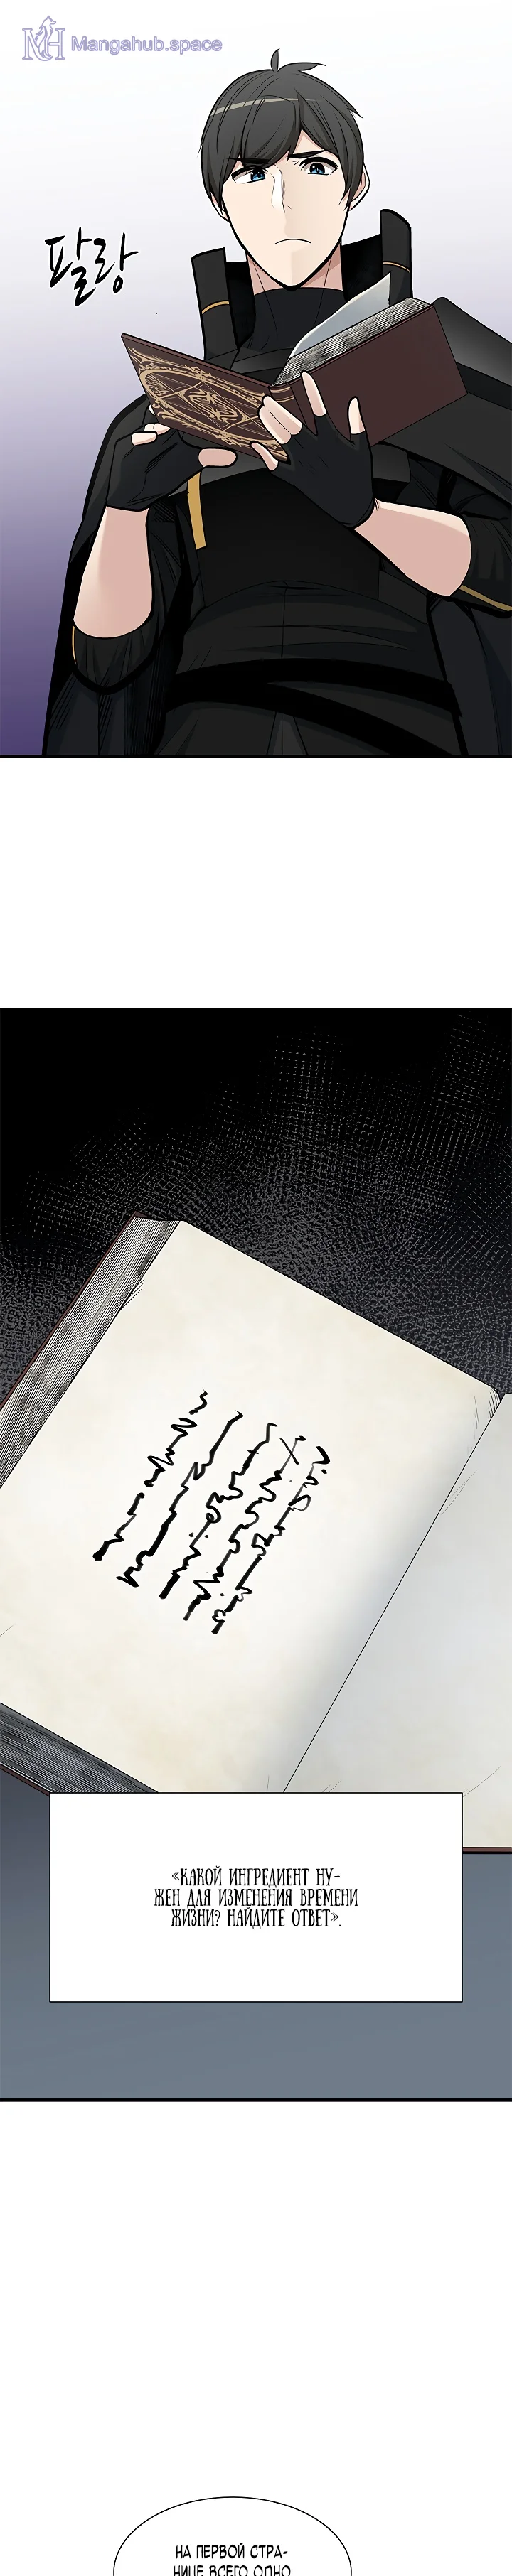 Mangahub.space
팔랑
«КАКОЙ ИНГРЕДИЕНТ НУ-
ЖЕН ДЛЯ ИЗМЕНЕНИЯ ВРЕМЕНИ
ЖИЗНИ? НАЙДИТЕ ОТВЕТ».
НА ПЕРВОЙ СТРА-
НИЦЕ ВСЕГО ОДНО